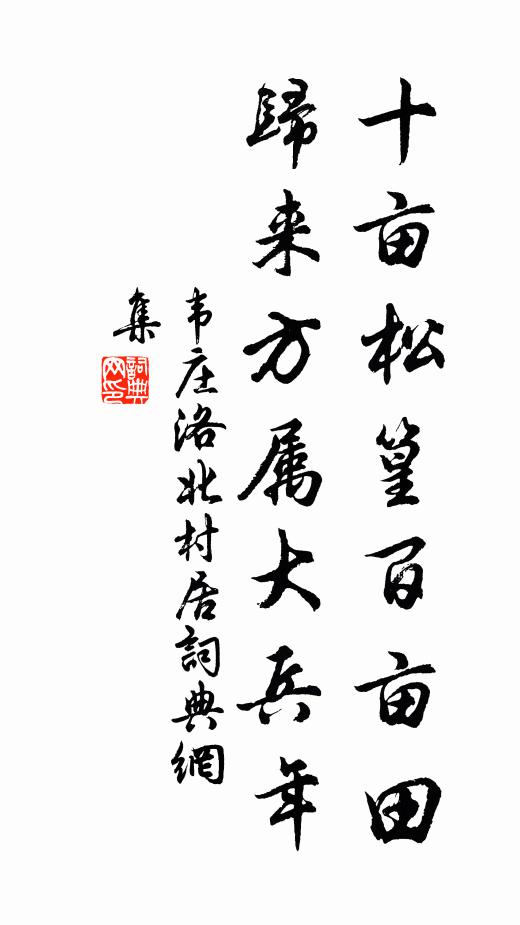 十亩松篁百亩田
歸来方属大兵年
韦庄洛北村居詞典網
集
詞典網印